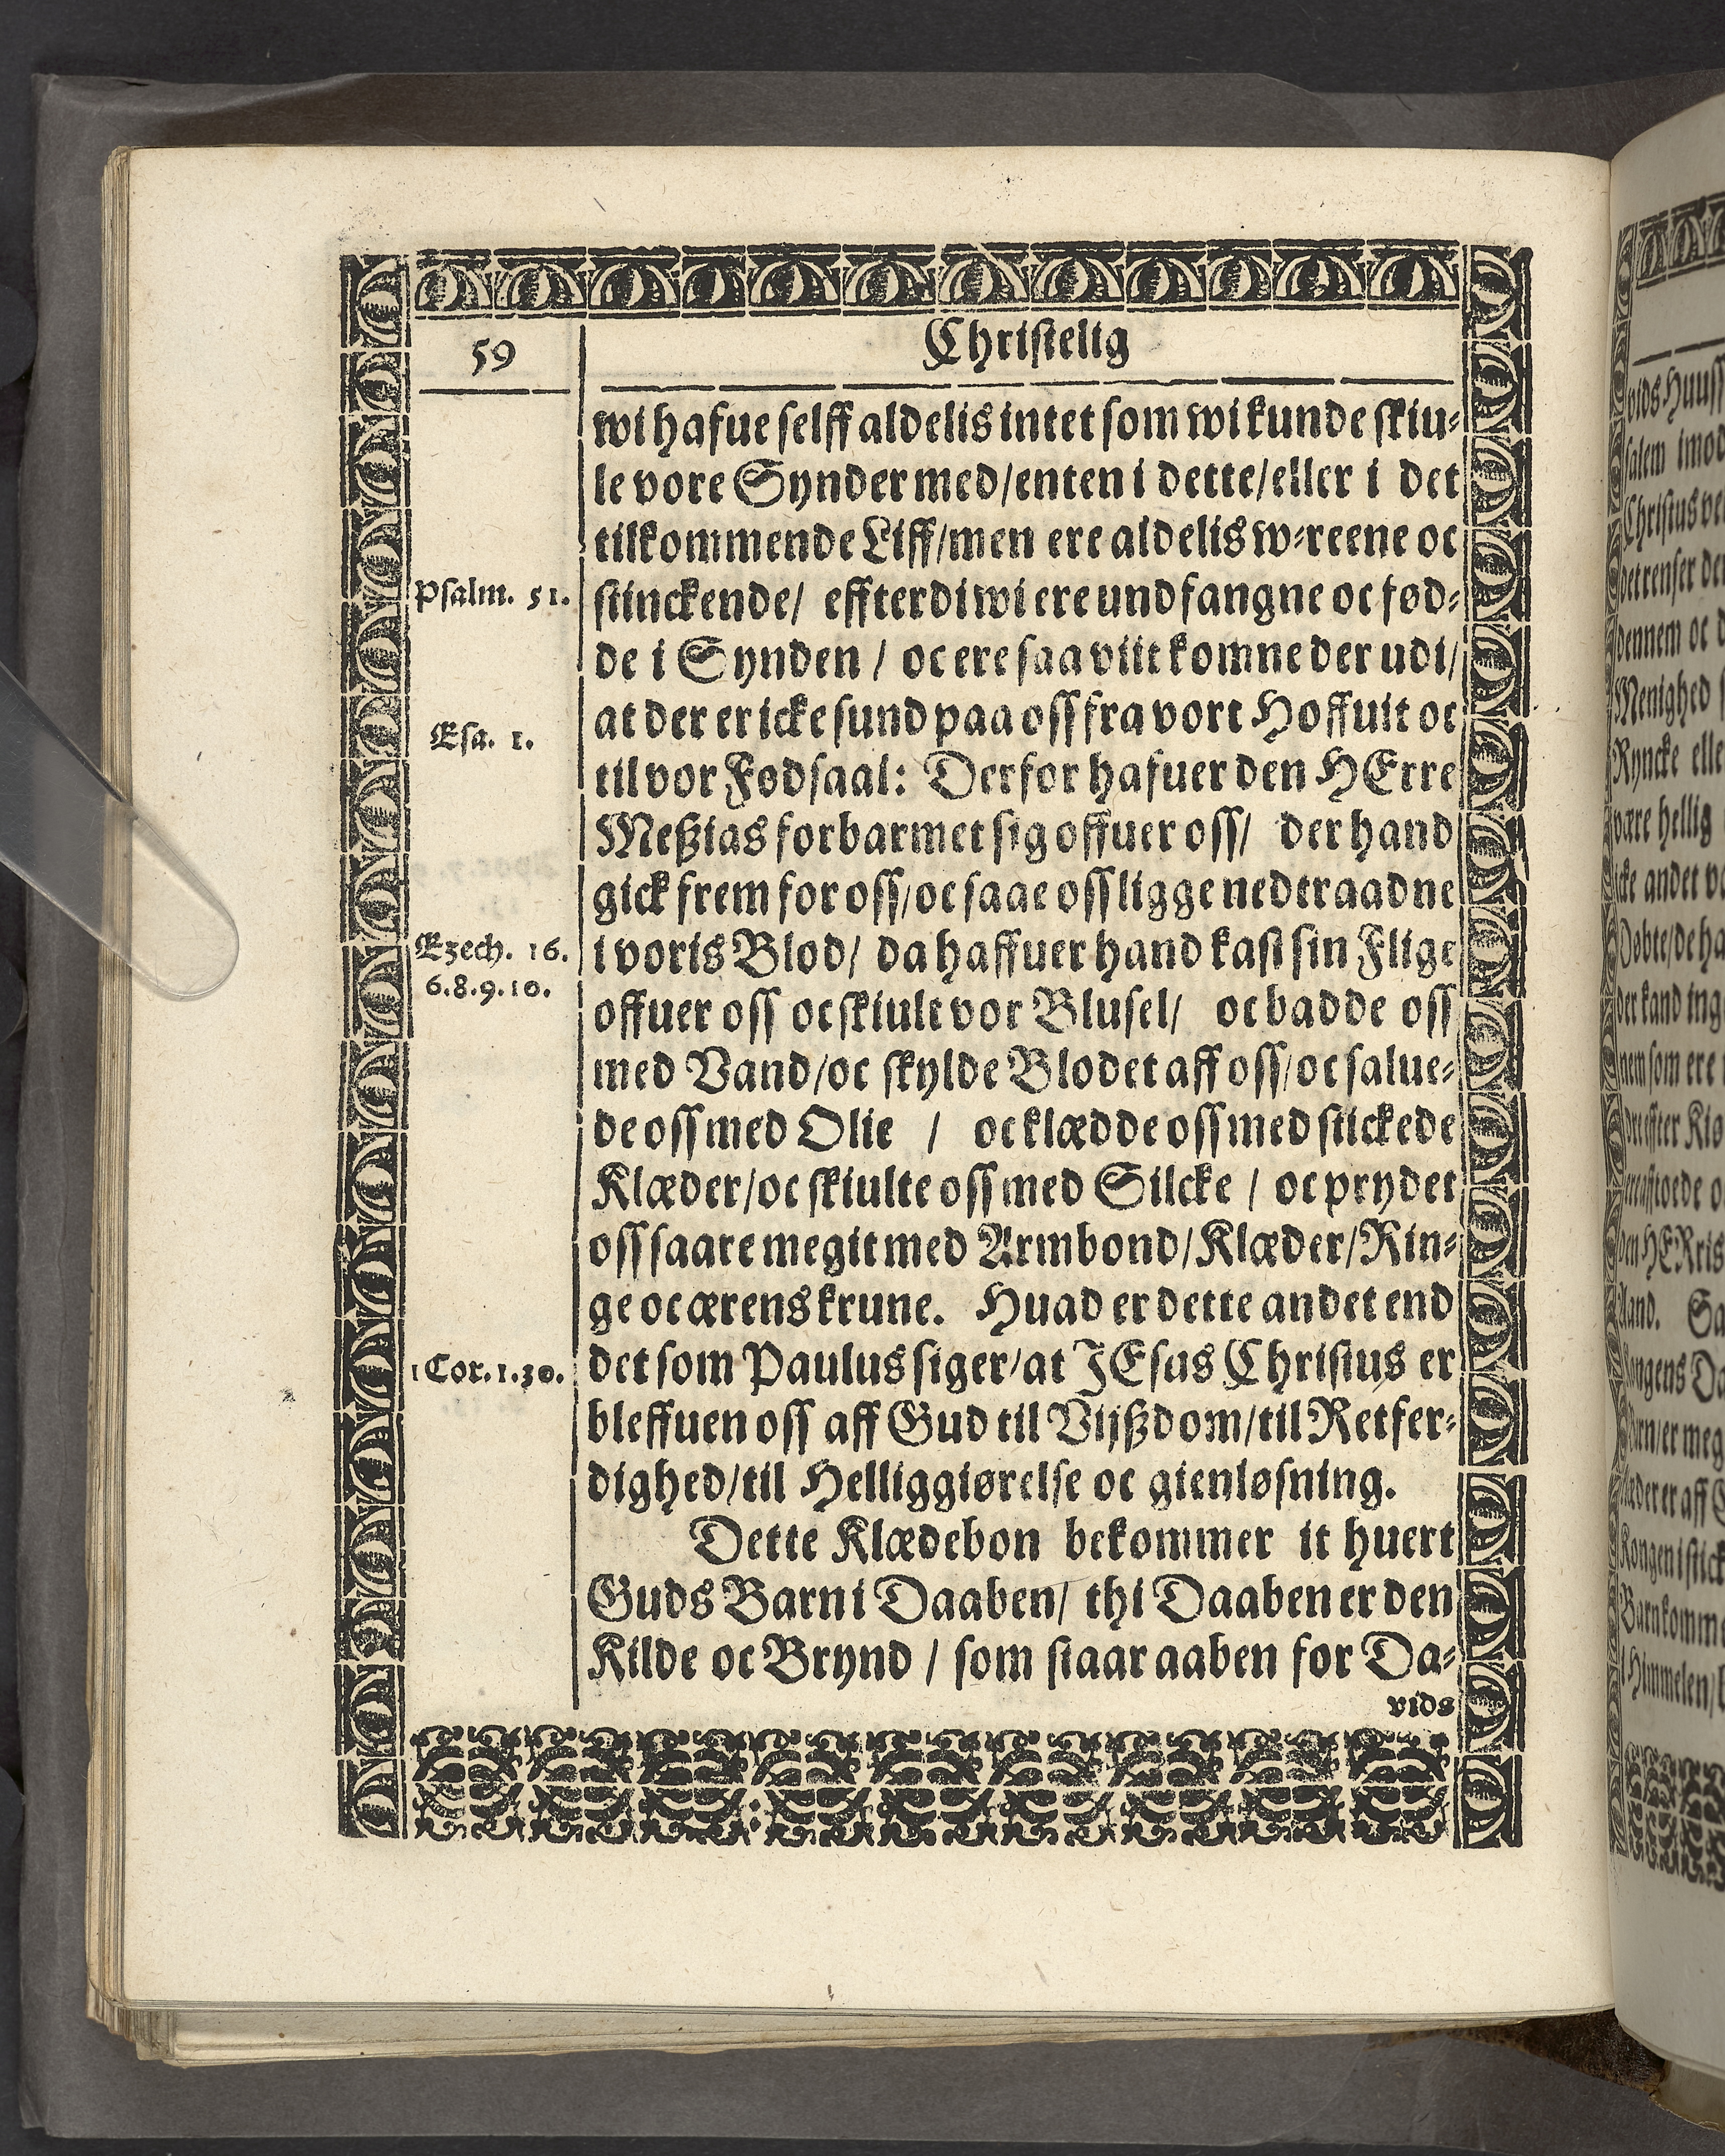 59
Christelig
wi hafue selff aldelis intet som wi kunde skiu-
le vore Synder med/enten i dette/eller i det
tilkommende Liff/men ere aldelis w-reene oc
Psalm. 51.
stinckende/ effterdi wi ere undfangne oc fød-
de i Synden / oc ere saa viit komne der udi/
at der er icke sund paa oss fra vort Hoffuit oc
Esa. 1.
til vor Fødsaal: Derfor hafuer den HErre
Meßias forbarmet sig offuer oss/ der hand
gick frem for oss/oc saae oss ligge nedtraadne
Ezech. 16.
6.8.9.10.
i voris Blod/ da haffuer hand kast sin Flige
offuer oss oc skiult vor Blusel/ oc badde oss
med Vand/oc skylde Blodet aff oss/oc salue-
de oss med Olie / oc klædde oss med stickede
Klæder/oc skiulte oss med Silcke / oc prydet
oss saare megit med Armbond/Klæder/Rin-
ge oc ærens krune. Huad er dette andet end
1 Cor.1.30.
det som Paulus siger/at JEsus Christus er
bleffuen oss aff Gud til Vijßdom/til Retfer-
dighed/til Helliggiørelse oc gienløsning.
Dette Klædebon bekommer it huert
Guds Barn i Daaben/ thi Daaben er den
Kilde oc Brynd / som staar aaben for Da-
vids